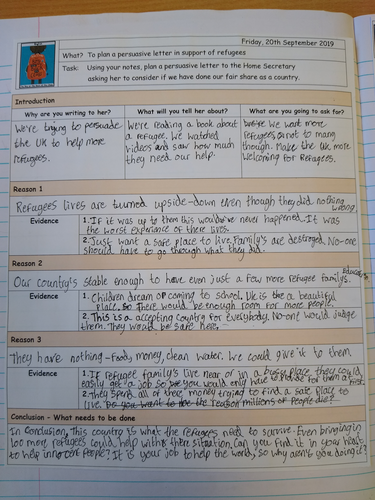 Friday, 20th September 2019
What? To plan a persuasive letter in support of refugees
Task: Using your notes, plan a persuasive letter to the Home Secretary
asking her to consider if we have done our fair share as a country.
Introduction
Why are you writing to her?
We're trying to persuade
the UK to help more
refugees.
What will you tell her about?
We're reading a book about
a refugee. We watched
videos and saw how much
they need our help.
What are you going to ask for?
We want more
refugees, not to many
though. Make the UK more
welcoming for Refugees.
Reason 1
Refugees lives are turned upside-down even though they did nothing
wrong.
Evidence
1. If it was up to them this would've never happened. It was
the worst experience of there lives.
2. Just want a safe place to live. Family's are destroyed. No-one
should have to go through what they did.
Reason 2
Our country's stable enough to have even just a few more refugee family's.
Education
Evidence
1. Children dream of coming to school. Uk is a beautiful
place, so there would be enough room for more people.
2. This is a accepting country for everybody. No-one would judge
them. They would be safe here.
Reason 3
They have nothing - food, money, clean water. We could give it to them.
Evidence
1. If refugee family's live near or in a busy place they could
easily get a job so you would only have to provide for them at
first.
2. They spend all of there money trying to find a safe place to
live. Do you want to be the reason millions of people die?
Conclusion - What needs to be done
In Conclusion, This country is what the refugees need to survive. Even bringing in
100 more refugees could help with there situation. Can you find it in your heart
to help innocent people? It is your job to help the world, so why aren't you doing it?